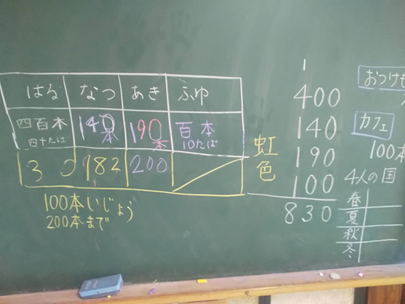 はる なつ あき ふゆ
四百本 140本 190本 百本
四十たば 10たば
30 982 200
100本いじょう
200本まで
虹色
400
140
190
100
830
おつけも
カフェ
100本
4人の国
春
夏
秋
冬